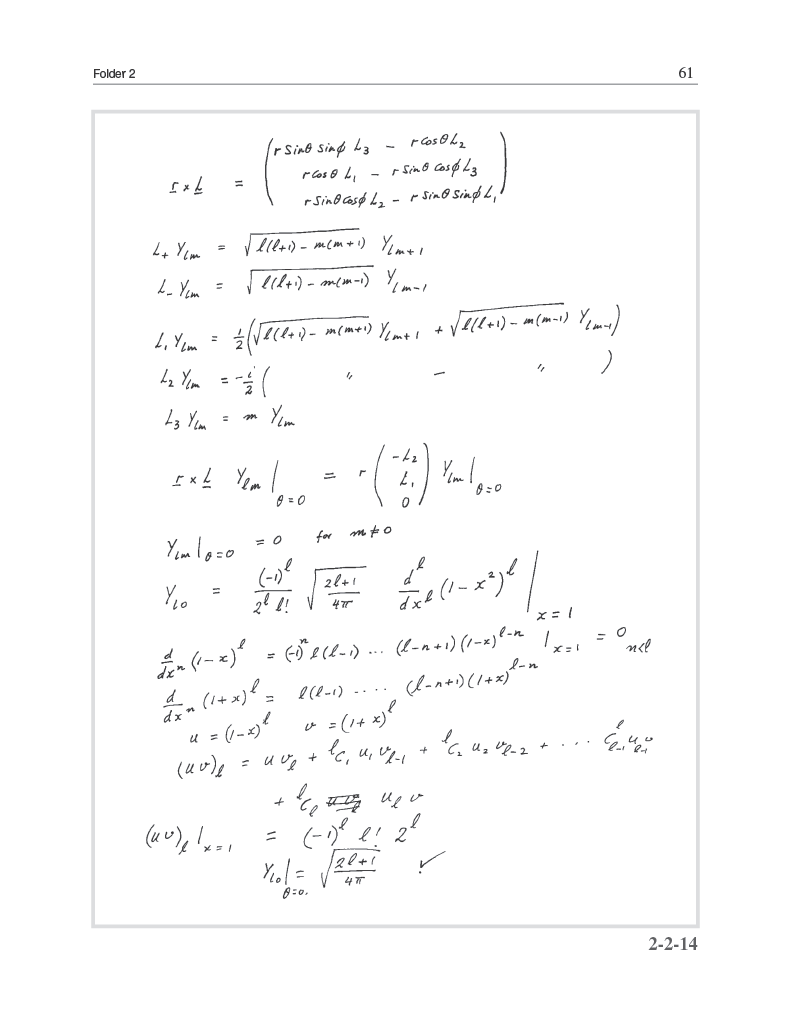 Folder 2 61
r sinθ sinϕ L₃ − r cosθ L₂
r × L = ( r cosθ L₁ − r sinθ cosϕ L₃ )
r sinθ cosϕ L₂ − r sinθ sinϕ L₁
L₊ Yₗₘ = √(l(l+1) − m(m+1)) Yₗₘ₊₁
L₋ Yₗₘ = √(l(l+1) − m(m−1)) Yₗₘ₋₁
L₁ Yₗₘ = ½(√(l(l+1) − m(m+1)) Yₗₘ₊₁ + √(l(l+1) − m(m−1)) Yₗₘ₋₁)
L₂ Yₗₘ = −i/2 ( " − " )
L₃ Yₗₘ = m Yₗₘ
r × L Yₗₘ |_{θ=0} = r ( −L₂ L₁ 0 ) Yₗₘ |_{θ=0}
Yₗₘ |_{θ=0} = 0 for m ≠ 0
Yₗ₀ = (−1)^l / (2^l l!) √((2l+1)/4π) d^l/dx^l (1 − x²)^l |_{x=1}
d/dx^n (1−x)^l = (−1)^n l(l−1) ... (l−n+1)(1−x)^{l−n} |_{x=1} = 0 n<l
d/dx^n (1+x)^l = l(l−1) .... (l−n+1)(1+x)^{l−n}
u = (1−x)^l v = (1+x)^l
(uv)_l = u v_l + ^lC₁ u₁ v_{l−1} + ^lC₂ u₂ v_{l−2} + ... ^lC_{l−1} u_{l−1} v
+ ^lC_l u_l v
(uv)_l |_{x=1} = (−1)^l l! 2^l
Yₗ₀ |_{θ=0.} = √((2l+1)/4π) ✓
2-2-14